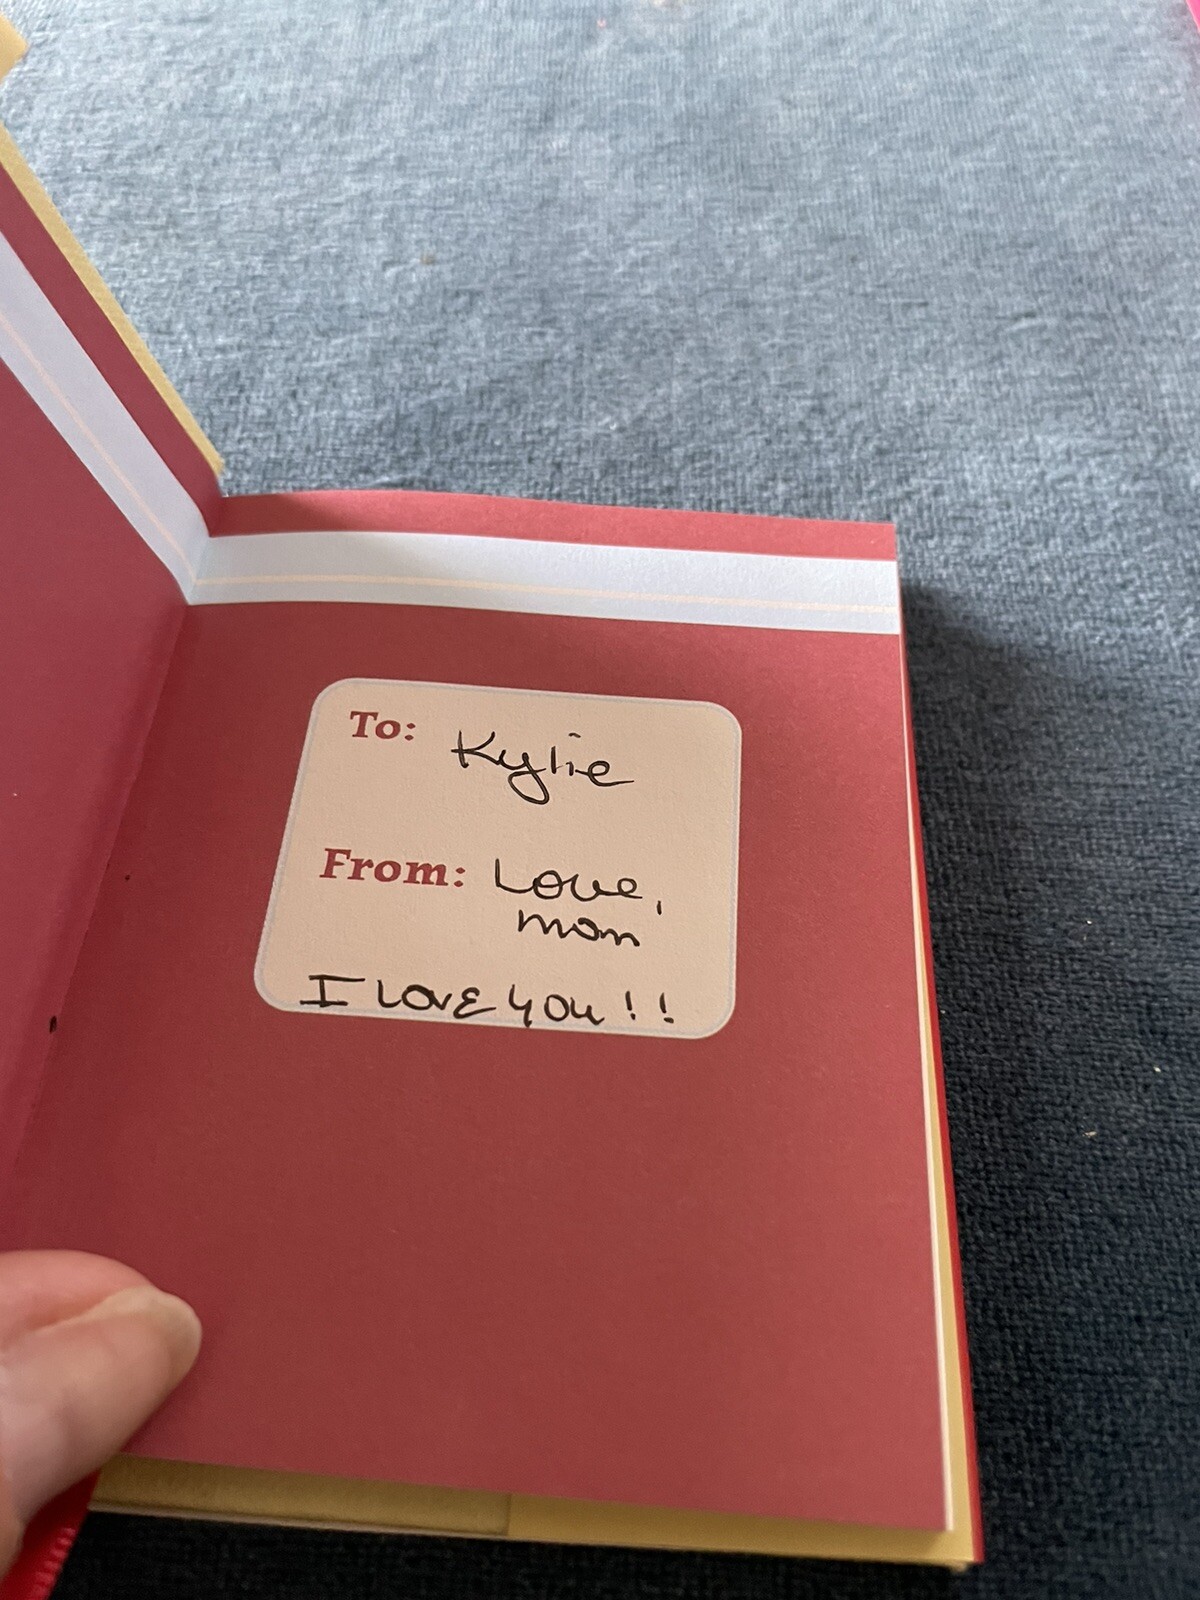 To: Kylie
From: Love,
mom
I LOVE YOU!!